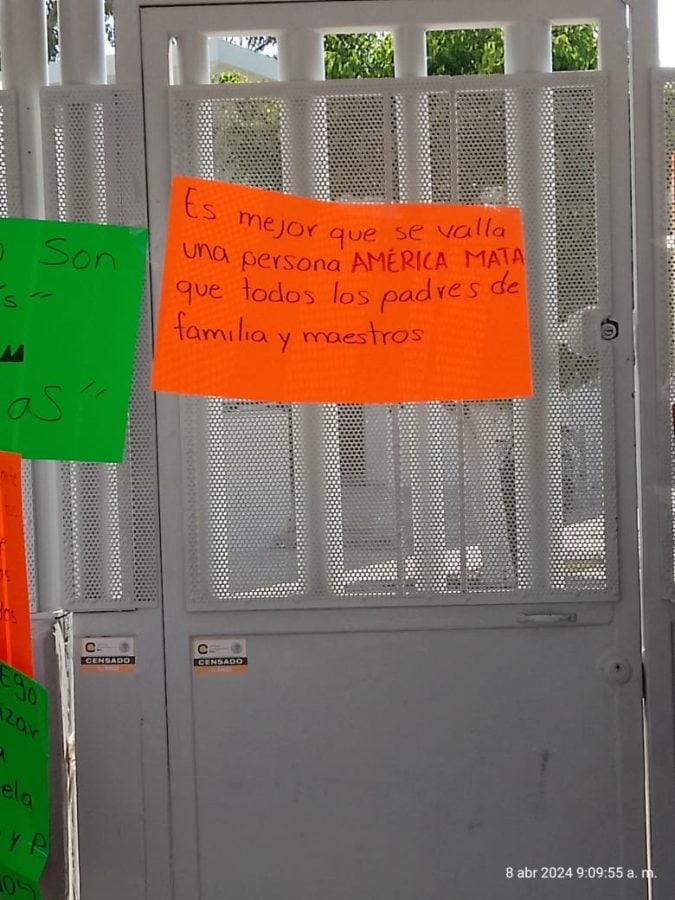 Son
s"
as"
Es mejor que se valla
una persona AMÉRICA MATA
que todos los padres de
familia y maestros
CENSADO
CENSADO
Ego
izar
a
ela
y P
8 abr 2024 9:09:55 a. m.